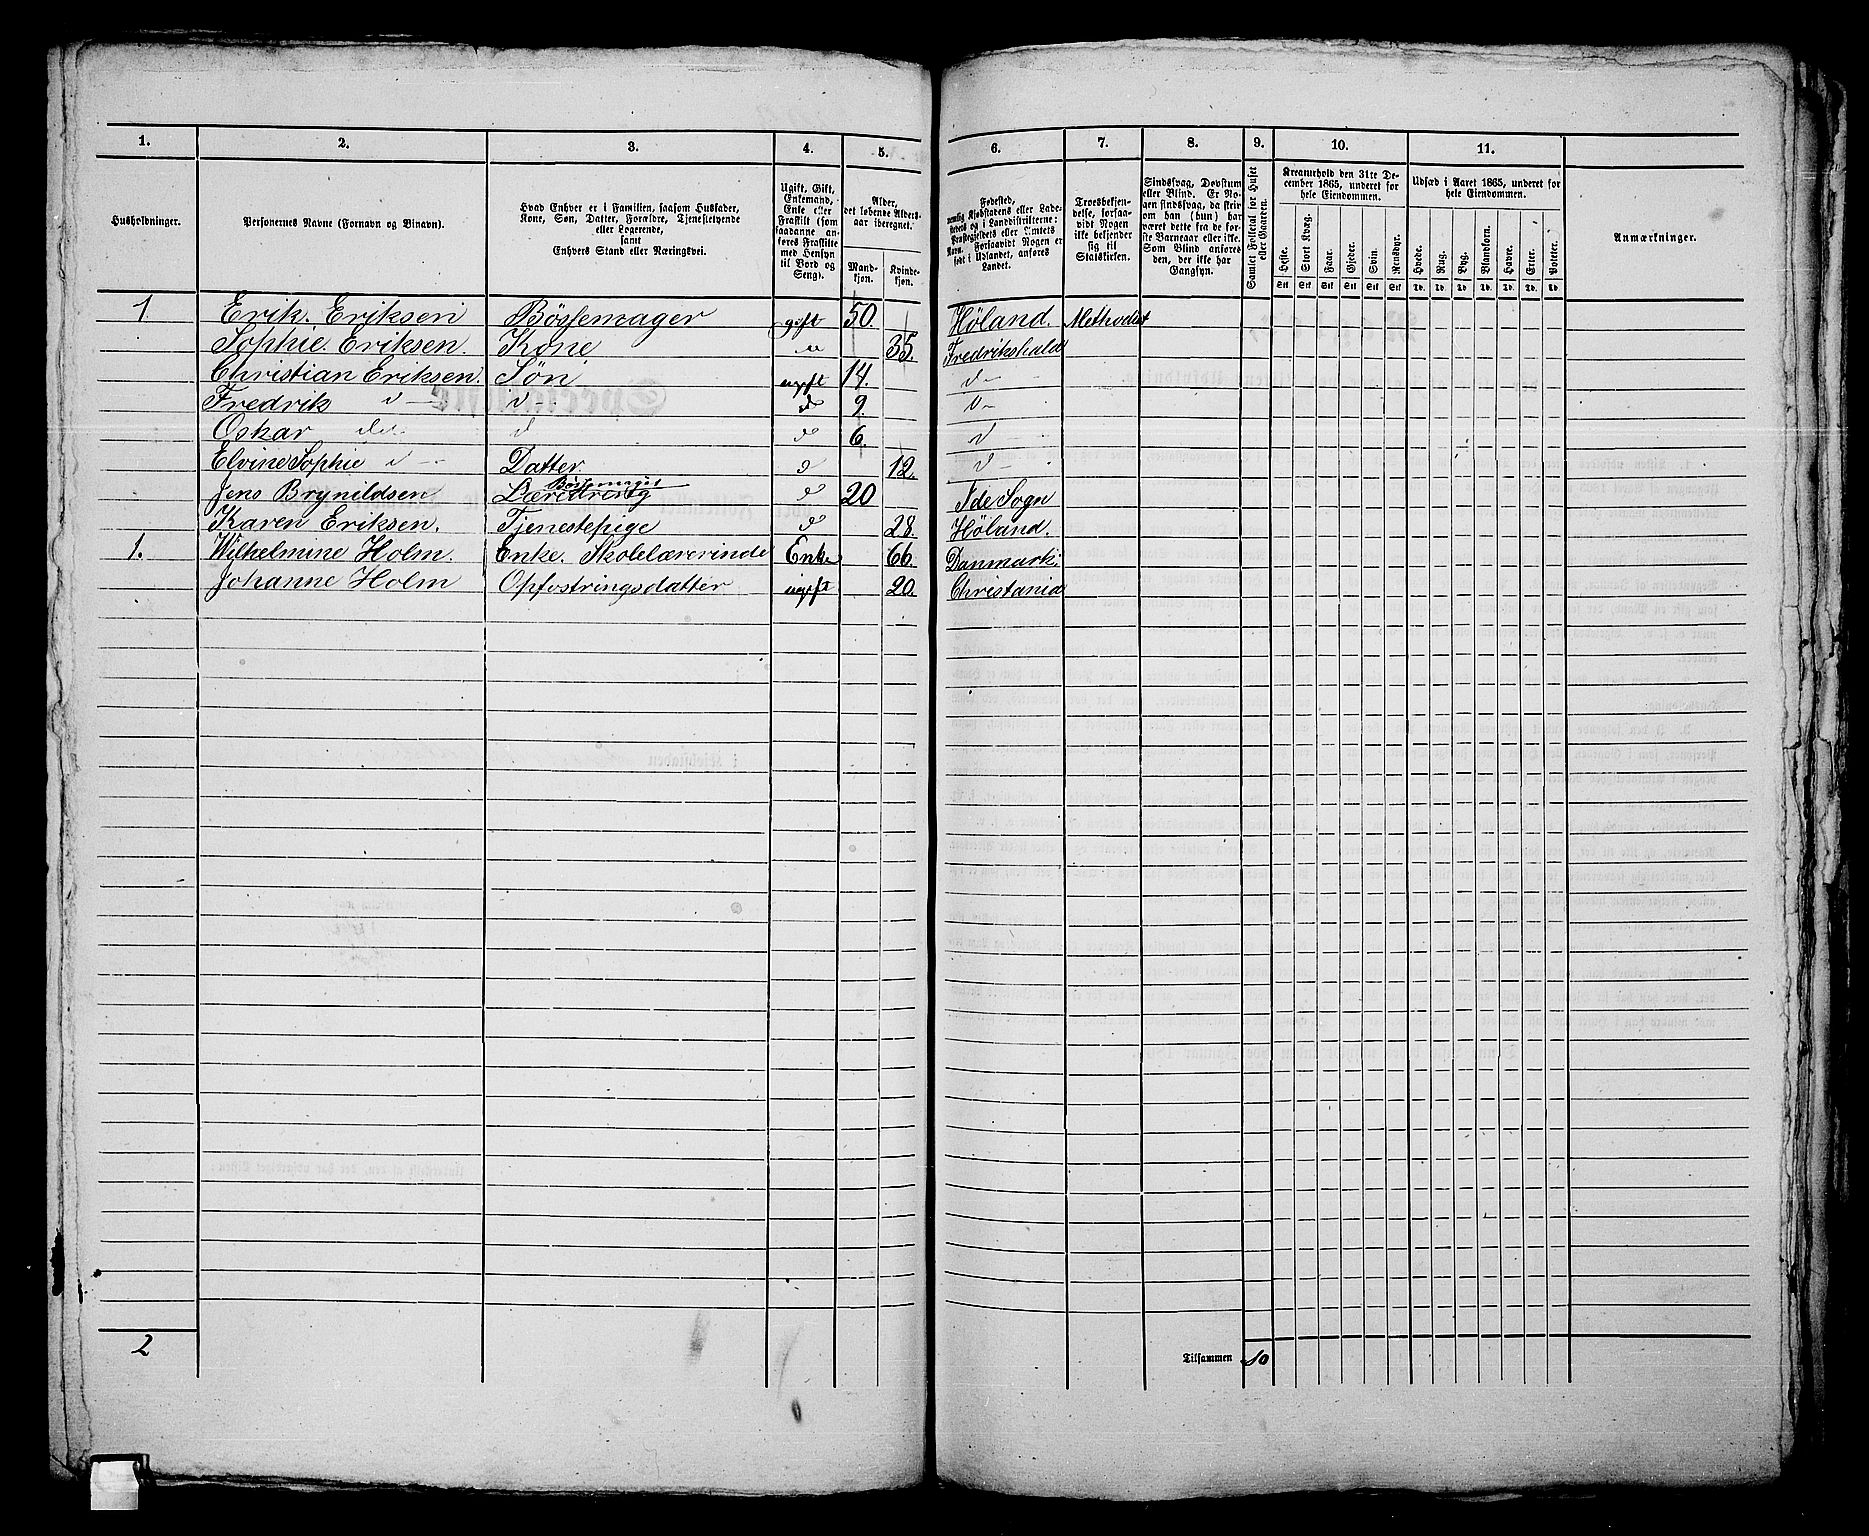 1. 2. 3. 4. 5. 6. 7. 8. 9. 10. 11.
Husholdninger.
Personernes Navne (Fornavn og Binavn).
Hvad Enhver er i Familien, saasom Husfader,
Kone, Søn, Datter, Forældre, Tjenestetyende
eller Logerende,
samt
Enhvers Stand eller Næringsvei.
Ugift, Gift,
Enkemand,
Enke eller
Fraskilt (som
saadanne an-
føres Fraskilte
med Hensyn
til Bord og
Seng).
Alder,
det løbende Alders-
aar iberegnet.
Mand-
kjøn.
Kvinde-
kjøn.
Fødested,
nemlig Kjøbstadens eller Lade-
stedets og i Landdistrikterne:
Præstegjeldets eller Amtets
Navn. Forsaavidt Nogen er
født i Udlandet, anføres
Landet.
Troesbekjen-
delse, forsaa-
vidt Nogen
ikke bekjender
sig til
Statskirken.
Sindssvag, Døvstum
eller Blind. Er No-
gen sindssvag, da skriv
om han (hun) har
været dette fra de før-
ste Barneaar eller ikke.
Som Blind anføres
den, der ikke har
Gangsyn.
Samlet Folketal for Huset
eller Gaarden.
Kreaturhold den 31te De-
cember 1865, underet for
hele Eiendommen.
Heste. Stort Kvæg. Faar. Gjeder. Svin. Rensdyr.
Stk Stk Stk Stk Stk Stk
Udsæd i Aaret 1865, underet for
hele Eiendommen.
Hvede. Rug. Byg. Blandkorn. Havre. Erter. Poteter.
Td. Td. Td. Td. Td. Td. Td.
Anmærkninger.
1 Erik. Eriksen Bössemager gift 50. Höland. Methodist
Sophie. Eriksen. Kone " 35. Fredrikshald
Christian Eriksen. Sön ugift 14. d—
Fredrik d— d— d 9. d—
Oskar do d d 6. d—
Elvine Sophie d— Datter. d 12. d—
Jens Brynildsen Bössemager Læredreng d 20 Ide Sogn
Karen Eriksen. Tjenestepige d 28. Höland.
1. Wilhelmine Holm. Enke. Skolelærerinde Enke 66. Danmark.
Johanne Holm Opfostringsdatter ugift 20. Christania
2 Tilsammen 10